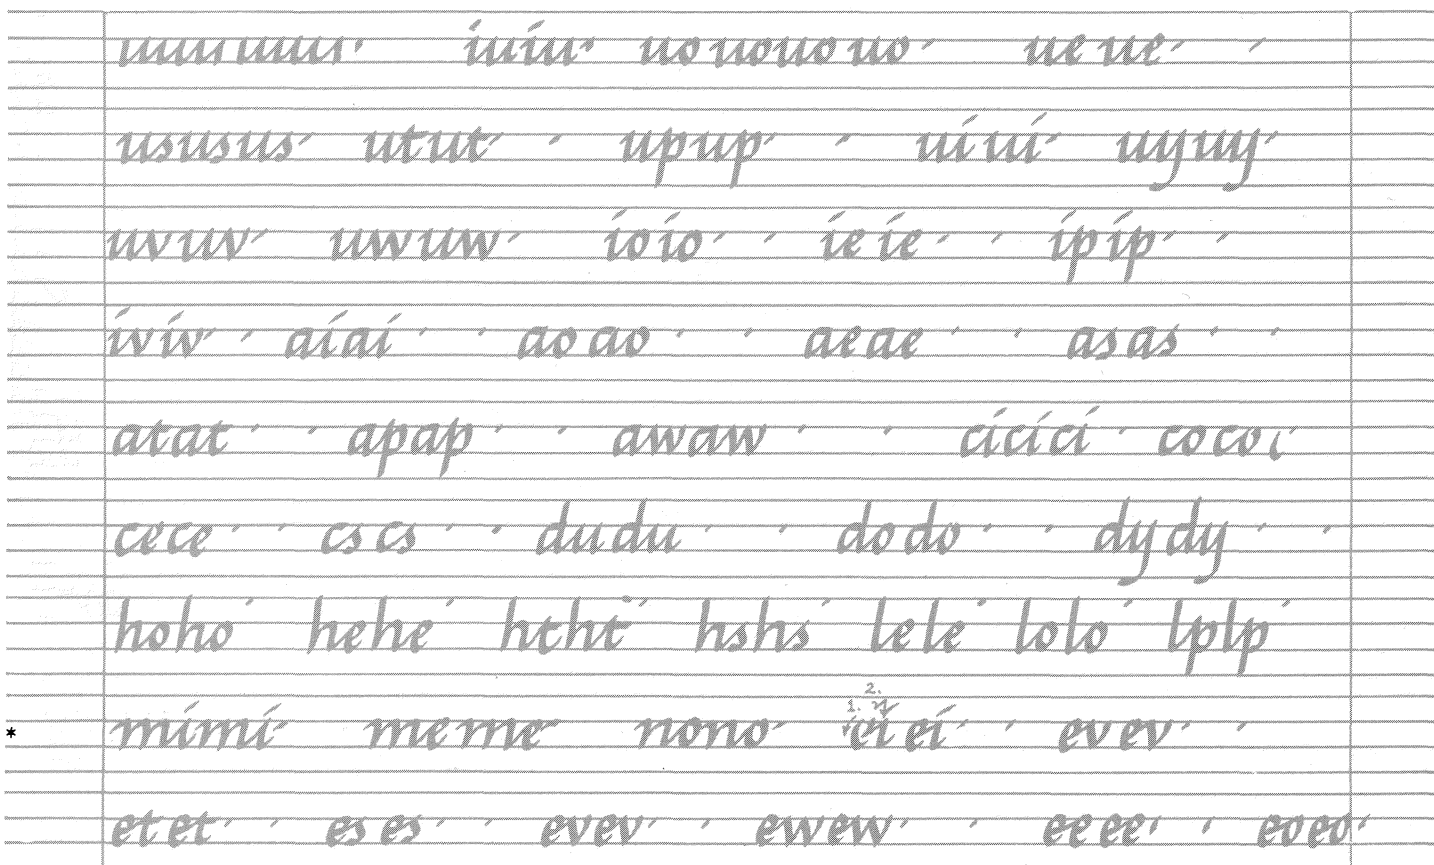 uuuuuuu iuiu uouououo ueue
ususus utut upup uiui uyuy
uvuv uwuw ioio ieie ipip
iviv aiai aoao aeae asas
atat apap awaw cicici coco
cece cscs dudu dodo dydy
hoho hehe htht hshs lele lolo lplp
2.
1.
* mimi meme nono eiei evev
etet eses evev ewew eeee eoeo